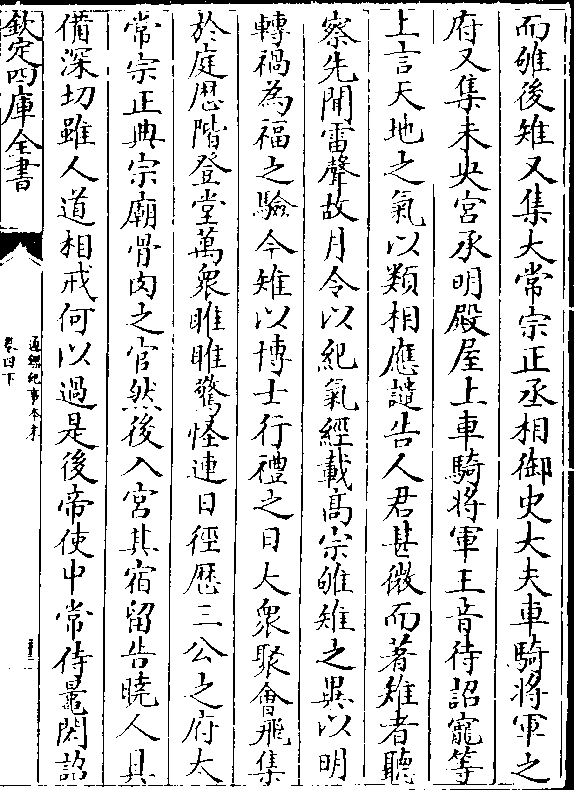 而雊後雉又集大常宗正丞相御史大夫車騎將軍之
府又集未央宫承明殿屋上車騎將軍王音待詔寵等
上言天地之氣以類相應譴告人君甚微而著雉者聽
察先聞雷聲故月令以紀氣經載髙宗雊雉之異以明
轉禍為福之驗今雉以博士行禮之日大衆聚㑹飛集
於庭歴階登堂萬衆睢睢驚怪連日徑歴三公之府太
常宗正典宗廟骨肉之官然後入宫其宿留告曉人具
備深切雖人道相戒何以過是後帝使中常侍鼂閎詔
欽定四庫全書
通鑑紀事本末
卷四下